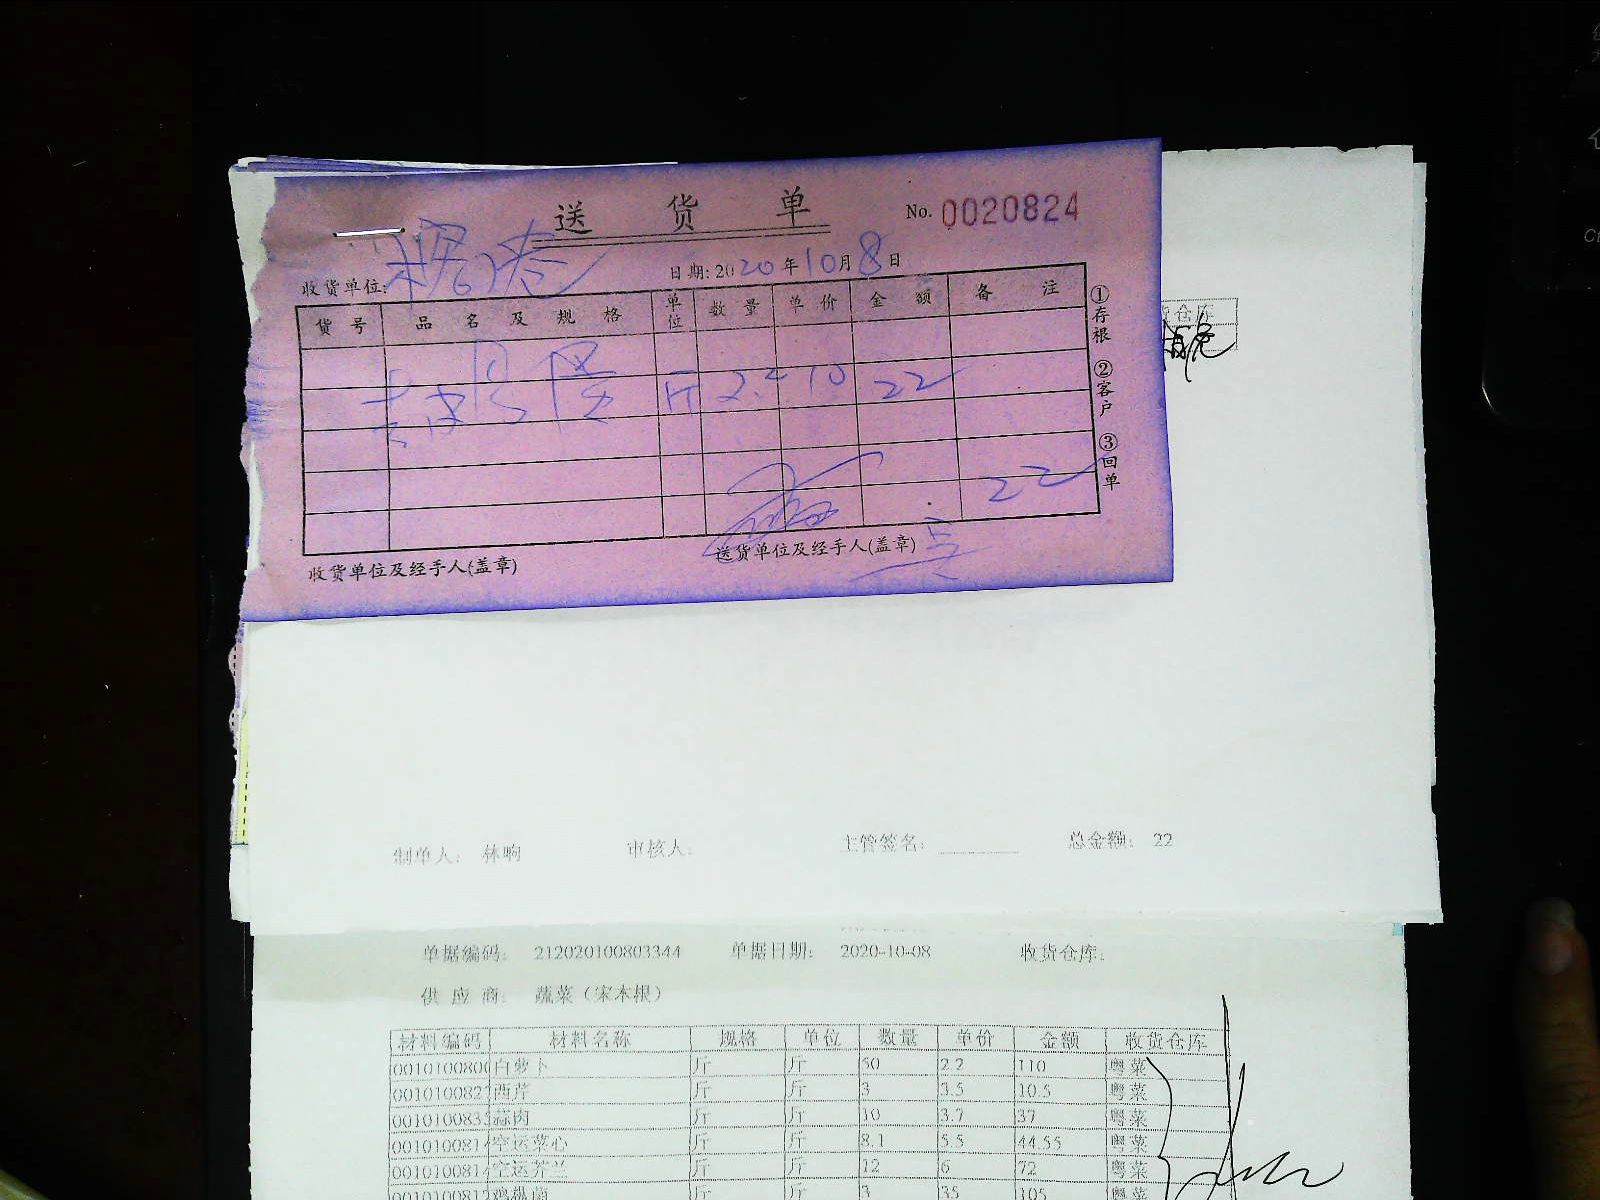 送 货 单 No. 0020824
收货单位: 日期: 2020年10月8日
货号 品名及规格 单位 数量 单价 金额 备注
斤 2.2 10 22
22
收货单位及经手人(盖章) 送货单位及经手人(盖章)
①存根 ②客户 ③回单
仓库
制单人: 林晌 审核人: 主管签名: 总金额: 22
单据编码: 212020100803344 单据日期: 2020-10-08 收货仓库:
供应商: 蔬菜(宋本根)
材料编码 材料名称 规格 单位 数量 单价 金额 收货仓库
001010080 白萝卜 斤 斤 50 2.2 110 粤菜
001010082 西芹 斤 斤 3 3.5 10.5 粤菜
001010083 蒜肉 斤 斤 10 3.7 37 粤菜
001010081 空运菜心 斤 斤 8.1 5.5 44.55 粤菜
001010081 空运芥兰 斤 斤 12 6 72 粤菜
001010081 鸡枞菌 斤 斤 3 35 105 粤菜